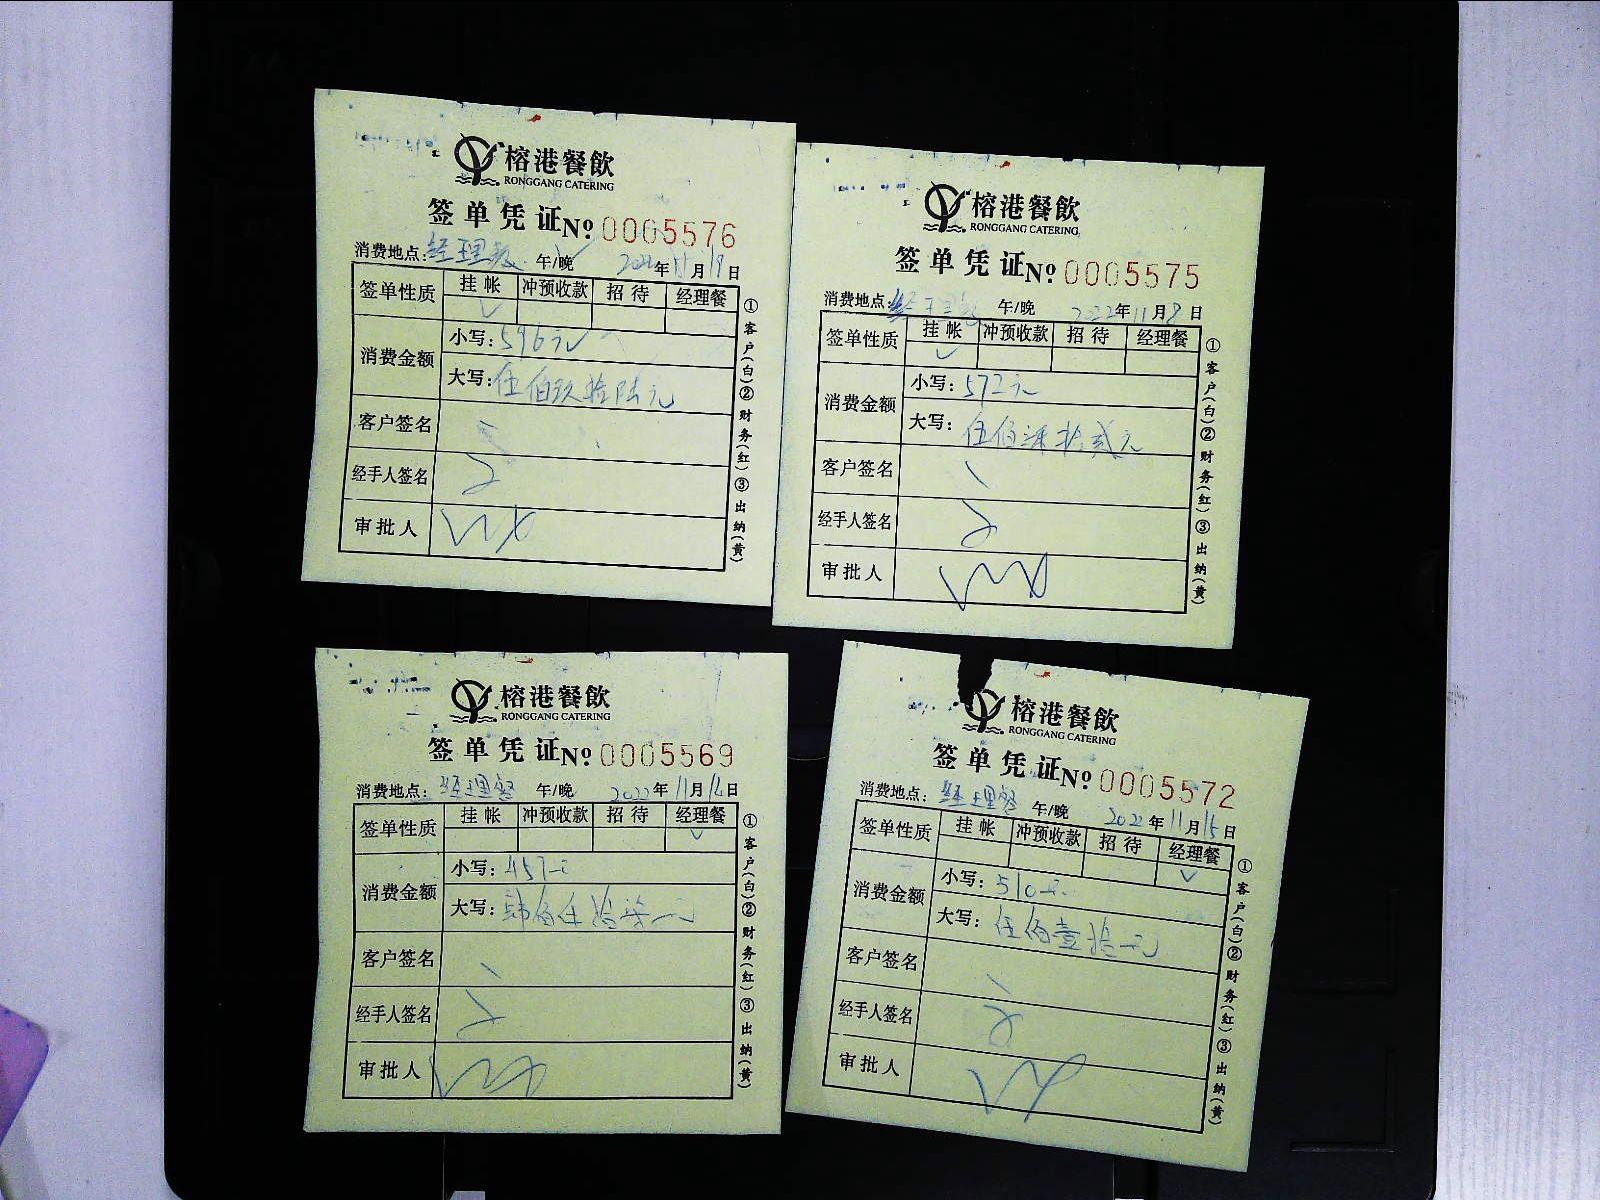 榕港餐飲
RONGGANG CATERING
签单凭证№0005576
消费地点：经理餐 午/晚 2022年11月19日
签单性质 挂帐 冲预收款 招待 经理餐
✓
消费金额
小写：596元
大写：伍佰玖拾陆元
客户签名
经手人签名
审批人
①客户(白)②财务(红)③出纳(黄)
榕港餐飲
RONGGANG CATERING
签单凭证№0005575
消费地点：经理餐 午/晚 2022年11月8日
签单性质 挂帐 冲预收款 招待 经理餐
✓
消费金额
小写：572元
大写：伍佰柒拾贰元
客户签名
经手人签名
审批人
①客户(白)②财务(红)③出纳(黄)
榕港餐飲
RONGGANG CATERING
签单凭证№0005569
消费地点：经理餐 午/晚 2022年11月日
签单性质 挂帐 冲预收款 招待 经理餐
✓
消费金额
小写：457元
大写：肆佰伍拾柒元
客户签名
经手人签名
审批人
①客户(白)②财务(红)③出纳(黄)
榕港餐飲
RONGGANG CATERING
签单凭证№0005572
消费地点：经理餐 午/晚 2022年11月15日
签单性质 挂帐 冲预收款 招待 经理餐
✓
消费金额
小写：510元
大写：伍佰壹拾元
客户签名
经手人签名
审批人
①客户(白)②财务(红)③出纳(黄)